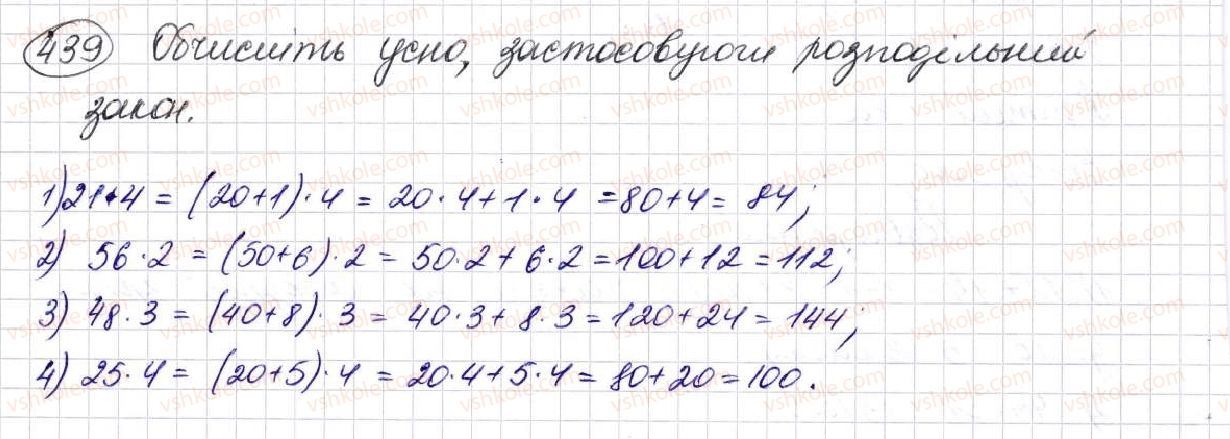 439 Обчисліть усно, застосовуючи розподільний
закон.
1) 21·4 = (20+1)·4 = 20·4+1·4 =80+4= 84;
2) 56·2 = (50+6)·2 = 50·2+6·2=100+12=112;
3) 48·3 = (40+8)·3 = 40·3+8·3=120+24=144;
4) 25·4 = (20+5)·4 = 20·4+5·4=80+20=100.